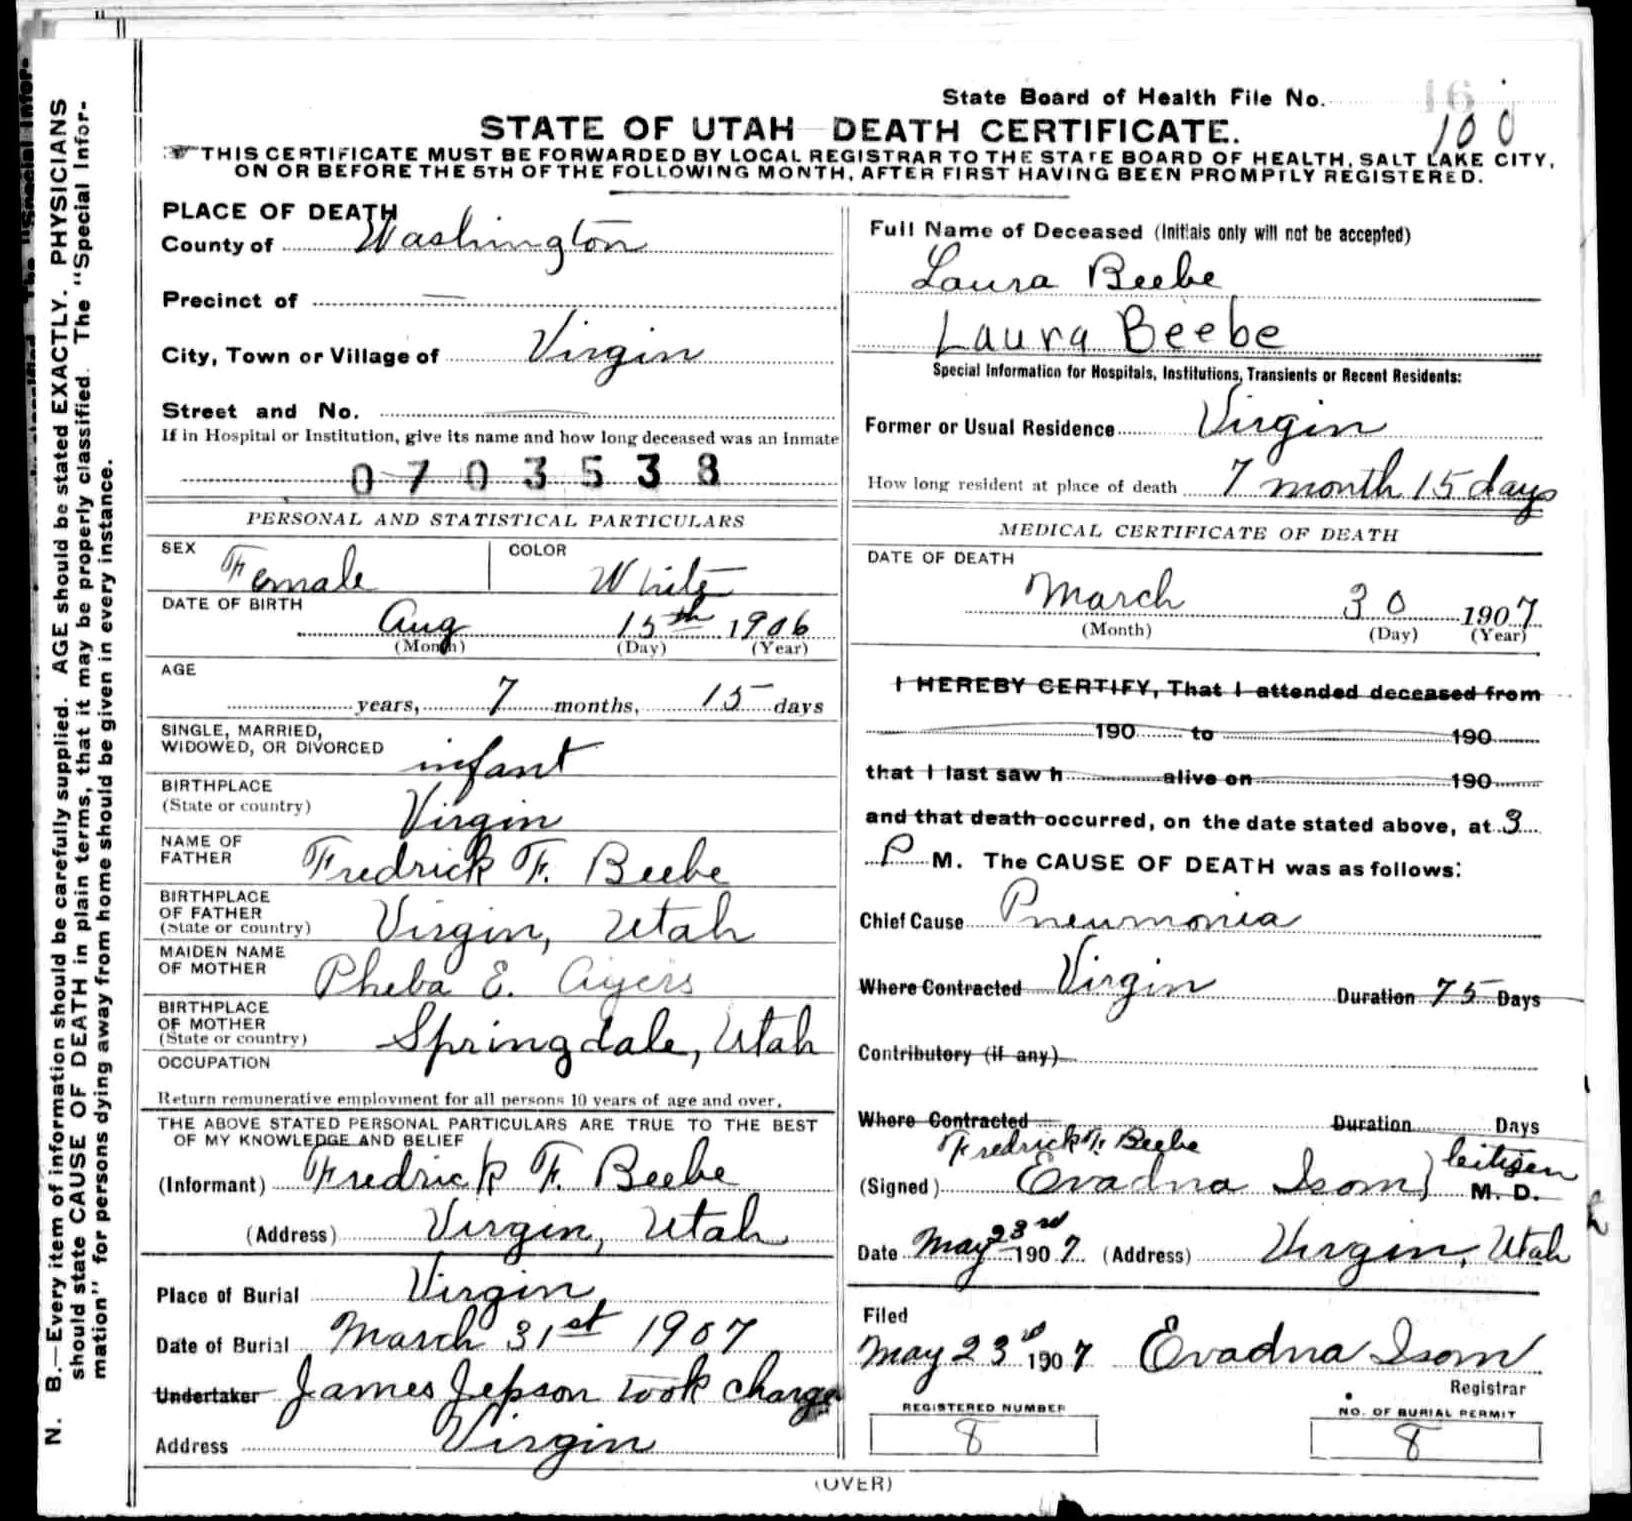 State Board of Health File No. 16
100
STATE OF UTAH DEATH CERTIFICATE.
THIS CERTIFICATE MUST BE FORWARDED BY LOCAL REGISTRAR TO THE STATE BOARD OF HEALTH, SALT LAKE CITY,
ON OR BEFORE THE 5TH OF THE FOLLOWING MONTH, AFTER FIRST HAVING BEEN PROMPTLY REGISTERED.
N. B.—Every item of information should be carefully supplied. AGE should be stated EXACTLY. PHYSICIANS
should state CAUSE OF DEATH in plain terms, that it may be properly classified. The "Special Infor-
mation" for persons dying away from home should be given in every instance.
PLACE OF DEATH
County of Washington
Precinct of —
City, Town or Village of Virgin
Street and No.
If in Hospital or Institution, give its name and how long deceased was an inmate
0703538
PERSONAL AND STATISTICAL PARTICULARS
SEX Female COLOR White
DATE OF BIRTH
Aug 15th 1906
(Month) (Day) (Year)
AGE
years, 7 months, 15 days
SINGLE, MARRIED,
WIDOWED, OR DIVORCED infant
BIRTHPLACE
(State or country) Virgin
NAME OF
FATHER Fredrick F. Beebe
BIRTHPLACE
OF FATHER
(State or country) Virgin, Utah
MAIDEN NAME
OF MOTHER Pheba E. Ayers
BIRTHPLACE
OF MOTHER
(State or country) Springdale, Utah
OCCUPATION
Return remunerative employment for all persons 10 years of age and over.
THE ABOVE STATED PERSONAL PARTICULARS ARE TRUE TO THE BEST
OF MY KNOWLEDGE AND BELIEF
(Informant) Fredrick F. Beebe
(Address) Virgin, Utah
Place of Burial Virgin
Date of Burial March 31st 1907
Undertaker James Jepson took charge
Address Virgin
Full Name of Deceased (Initials only will not be accepted)
Laura Beebe
Laura Beebe
Special Information for Hospitals, Institutions, Transients or Recent Residents:
Former or Usual Residence Virgin
How long resident at place of death 7 month 15 days
MEDICAL CERTIFICATE OF DEATH
DATE OF DEATH
March 30 1907
(Month) (Day) (Year)
I HEREBY CERTIFY, That I attended deceased from
190 to 190
that I last saw h alive on 190
and that death occurred, on the date stated above, at 3
P M. The CAUSE OF DEATH was as follows:
Chief Cause Pneumonia
Where Contracted Virgin Duration 75 Days
Contributory (if any)
Where Contracted Duration Days
Fredrick F. Beebe
(Signed) Evadna Isom } citizen M. D.
Date May 23rd 1907 (Address) Virgin, Utah
Filed
May 23rd 1907 Evadna Isom
Registrar
REGISTERED NUMBER NO. OF BURIAL PERMIT
8 8
(OVER)